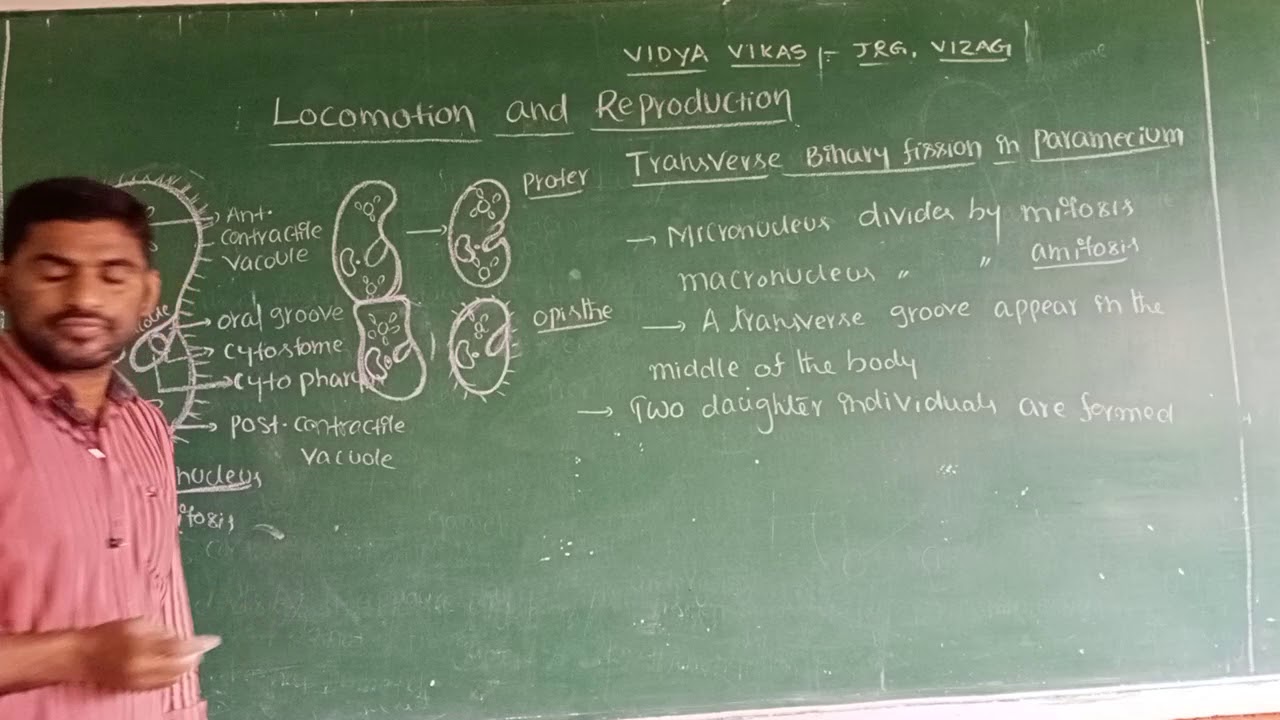 VIDYA VIKAS :- JRG, VIZAG
Locomotion and Reproduction
Transverse Binary fission in Paramecium
Ant.
contractile
vacoule
oral groove
cytostome
cyto
post. contractile
vacuole
nucleus
Proter
opisthe
→ Micronucleus divides by mitosis
macronucleus " " amitosis
→ A transverse groove appear in the
middle of the body
→ Two daughter individuals are formed